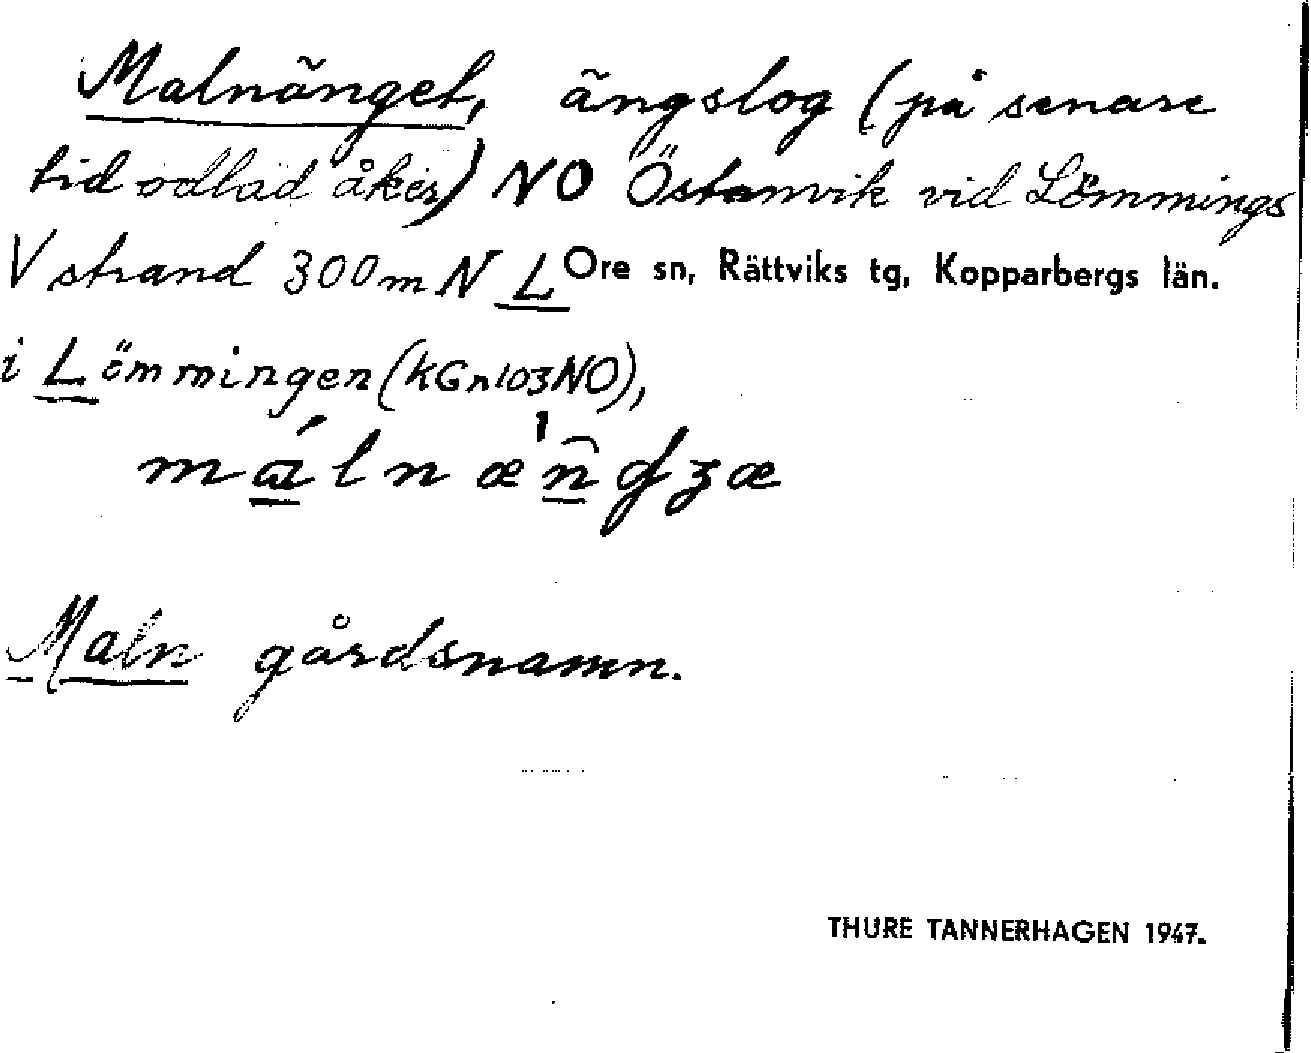 Malnänget, ängslog (på senare
tid odlad åker) NO Östanvik vid Lömmings
V strand 300m N L Ore sn, Rättviks tg, Kopparbergs län.
i Lömmingen (kGn103NO),
Maln gårdsnamn.
THURE TANNERHAGEN 1947.